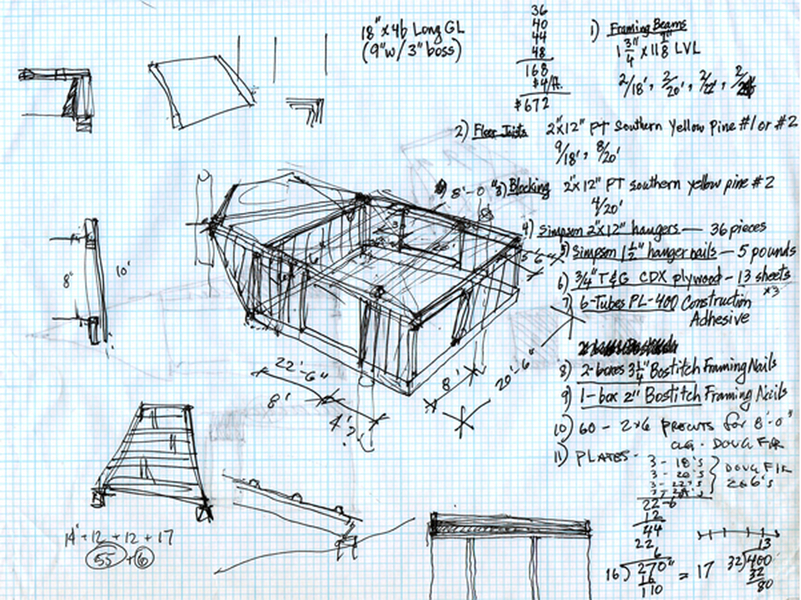 18" x 46 Long GL
(9" w/ 3" boss)
36
40
44
48
168
$4/ft.
$672
1) Framing Beams
1 3/4" x 11 7/8" LVL
2/18', 2/20', 2/22',
2) Floor Joists 2"x12" PT Southern Yellow Pine #1 or #2
9/18', 8/20'
3) Blocking 2"x12" PT southern yellow pine #2
4/20'
4) Simpson 2x12" hangers — 36 pieces
5) Simpson 1 1/2" hanger nails — 5 pounds
6) 3/4" T&G CDX plywood — 13 sheets
7) 6-Tubes PL-400 Construction x3
Adhesive
8) 2-boxes 3 1/4" Bostitch Framing Nails
9) 1-box 2" Bostitch Framing Nails
10) 60 - 2x6 precuts for 8'-0"
CLG. DOUG FIR
11) PLATES -
3 - 18's
3 - 20's
3 - 22's
DOUG FIR
2x6's
22-6
12
44
22
6
16)270"
16
110
= 17
13
32)400
32
80
8'-0"
8'
10'
22'-6"
8'
4'?
8'
20'-6"
14' + 12 + 12 + 17
55 + 6